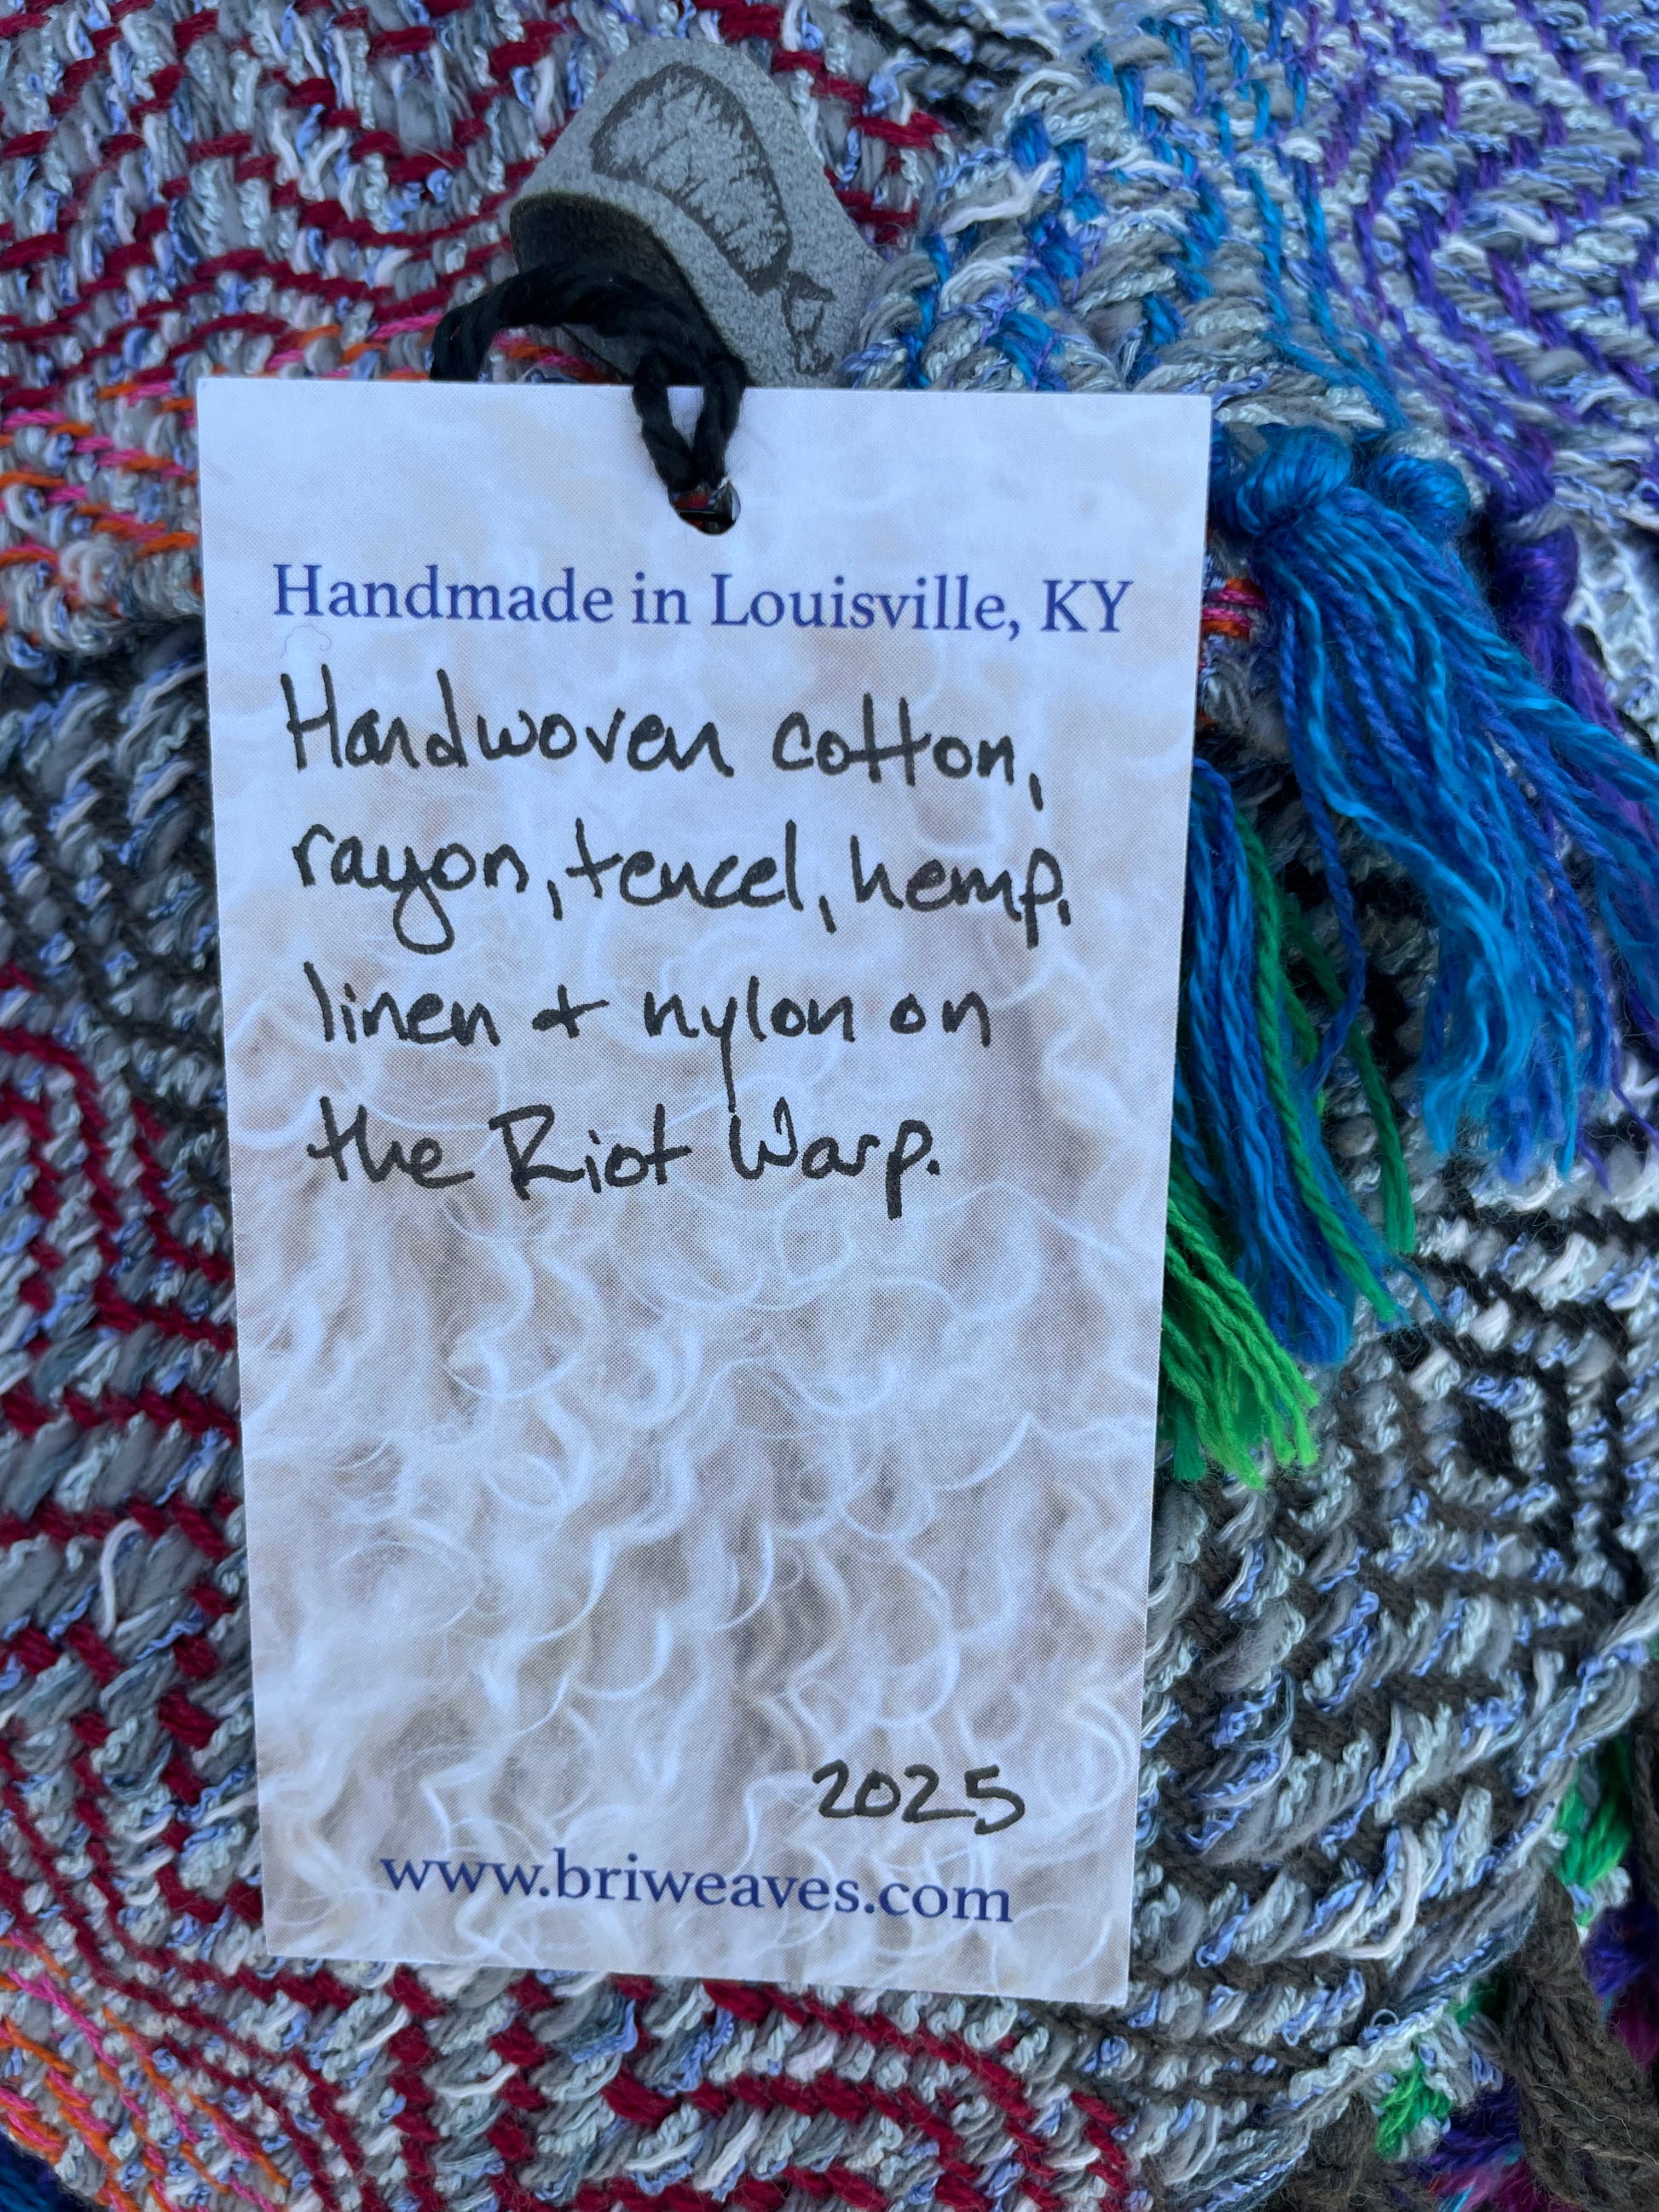 Handmade in Louisville, KY
Handwoven cotton,
rayon, tencel, hemp,
linen + nylon on
the Riot Warp.
2025
www.briweaves.com